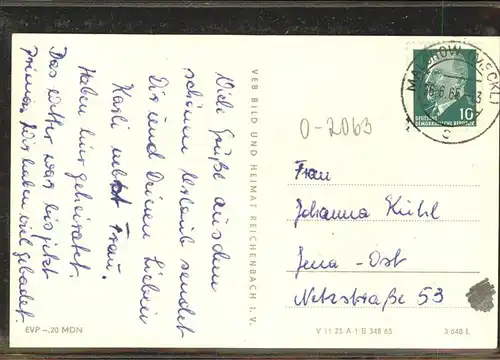 Viele Grüße aus dem
schönen Urlaub sendet
Dir und Deinen Lieben
Karli nebst Frau.
Haben hier geheiratet.
Das Wetter war bis jetzt
prima. Wir haben viel gebadet.
EVP –,20 MDN
VEB BILD UND HEIMAT REICHENBACH I. V.
MALCHOW (MECKL
6.6.66
10
DEUTSCHE
DEMOKRATISCHE REPUBLIK
s
0-2063
Frau
Johanna Kühl
Jena-Ost
Netzstraße 53
V 11 25 A 1 B 348 65
3/648 L